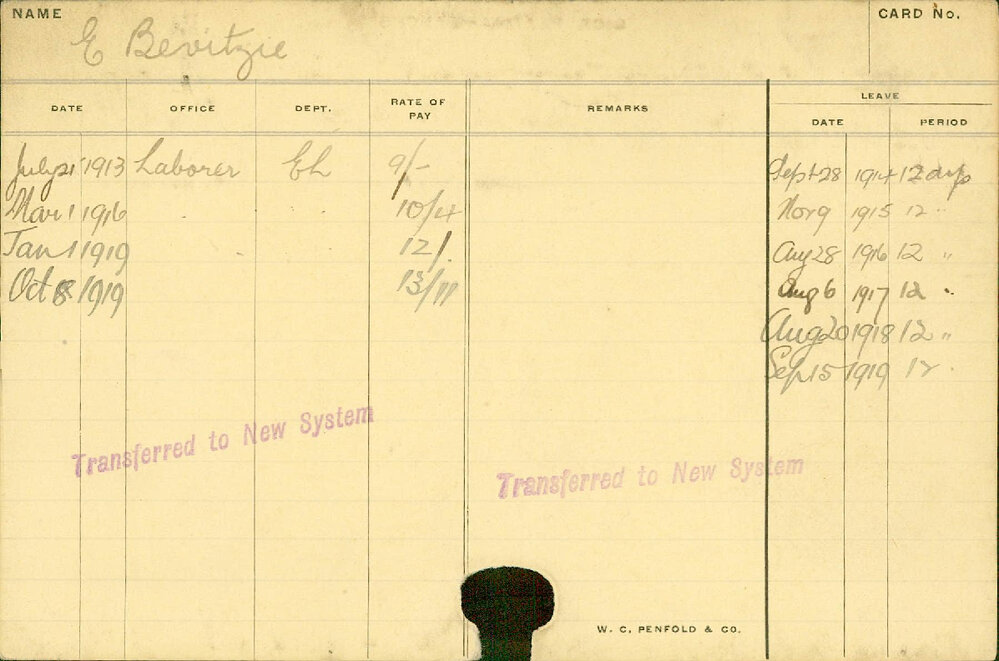 NAME
E Bevitzie
CARD No.
DATE OFFICE DEPT. RATE OF PAY REMARKS LEAVE
DATE PERIOD
July 21 1913 Laborer EL 9/- Sept 28 1914 12 days
Mar 1 1916 10/4 Nov 9 1915 12 "
Jan 1 1919 12/- Aug 28 1916 12 "
Oct 8 1919 13/11 Aug 6 1917 12 "
Aug 20 1918 12 "
Sep 15 1919 12 "
Transferred to New System
Transferred to New System
W. C. PENFOLD & CO.